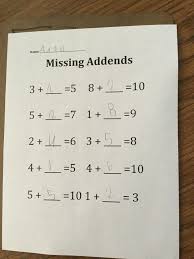 Name
Missing Addends
3 + __ =5 8 + 2 =10
5 + 2 =7 1 + 8 =9
2 + 4 =6 3 + 5 =8
4 + __ =5 4 + __ =10
5 + 5 =10 1 + 2 = 3